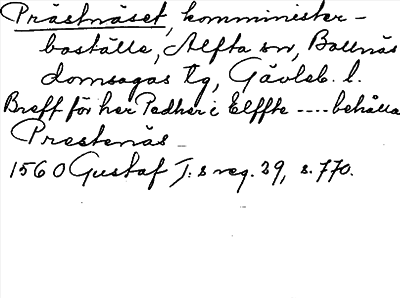 Prästnäset, komminister-
boställe, Alfta sn, Bollnäs
domsagas tg, Gävleb. l.
Breff för her Pedher i Elffte ---- behålla
Prestenäs -
1560 Gustaf I:s reg. 29, s. 770.